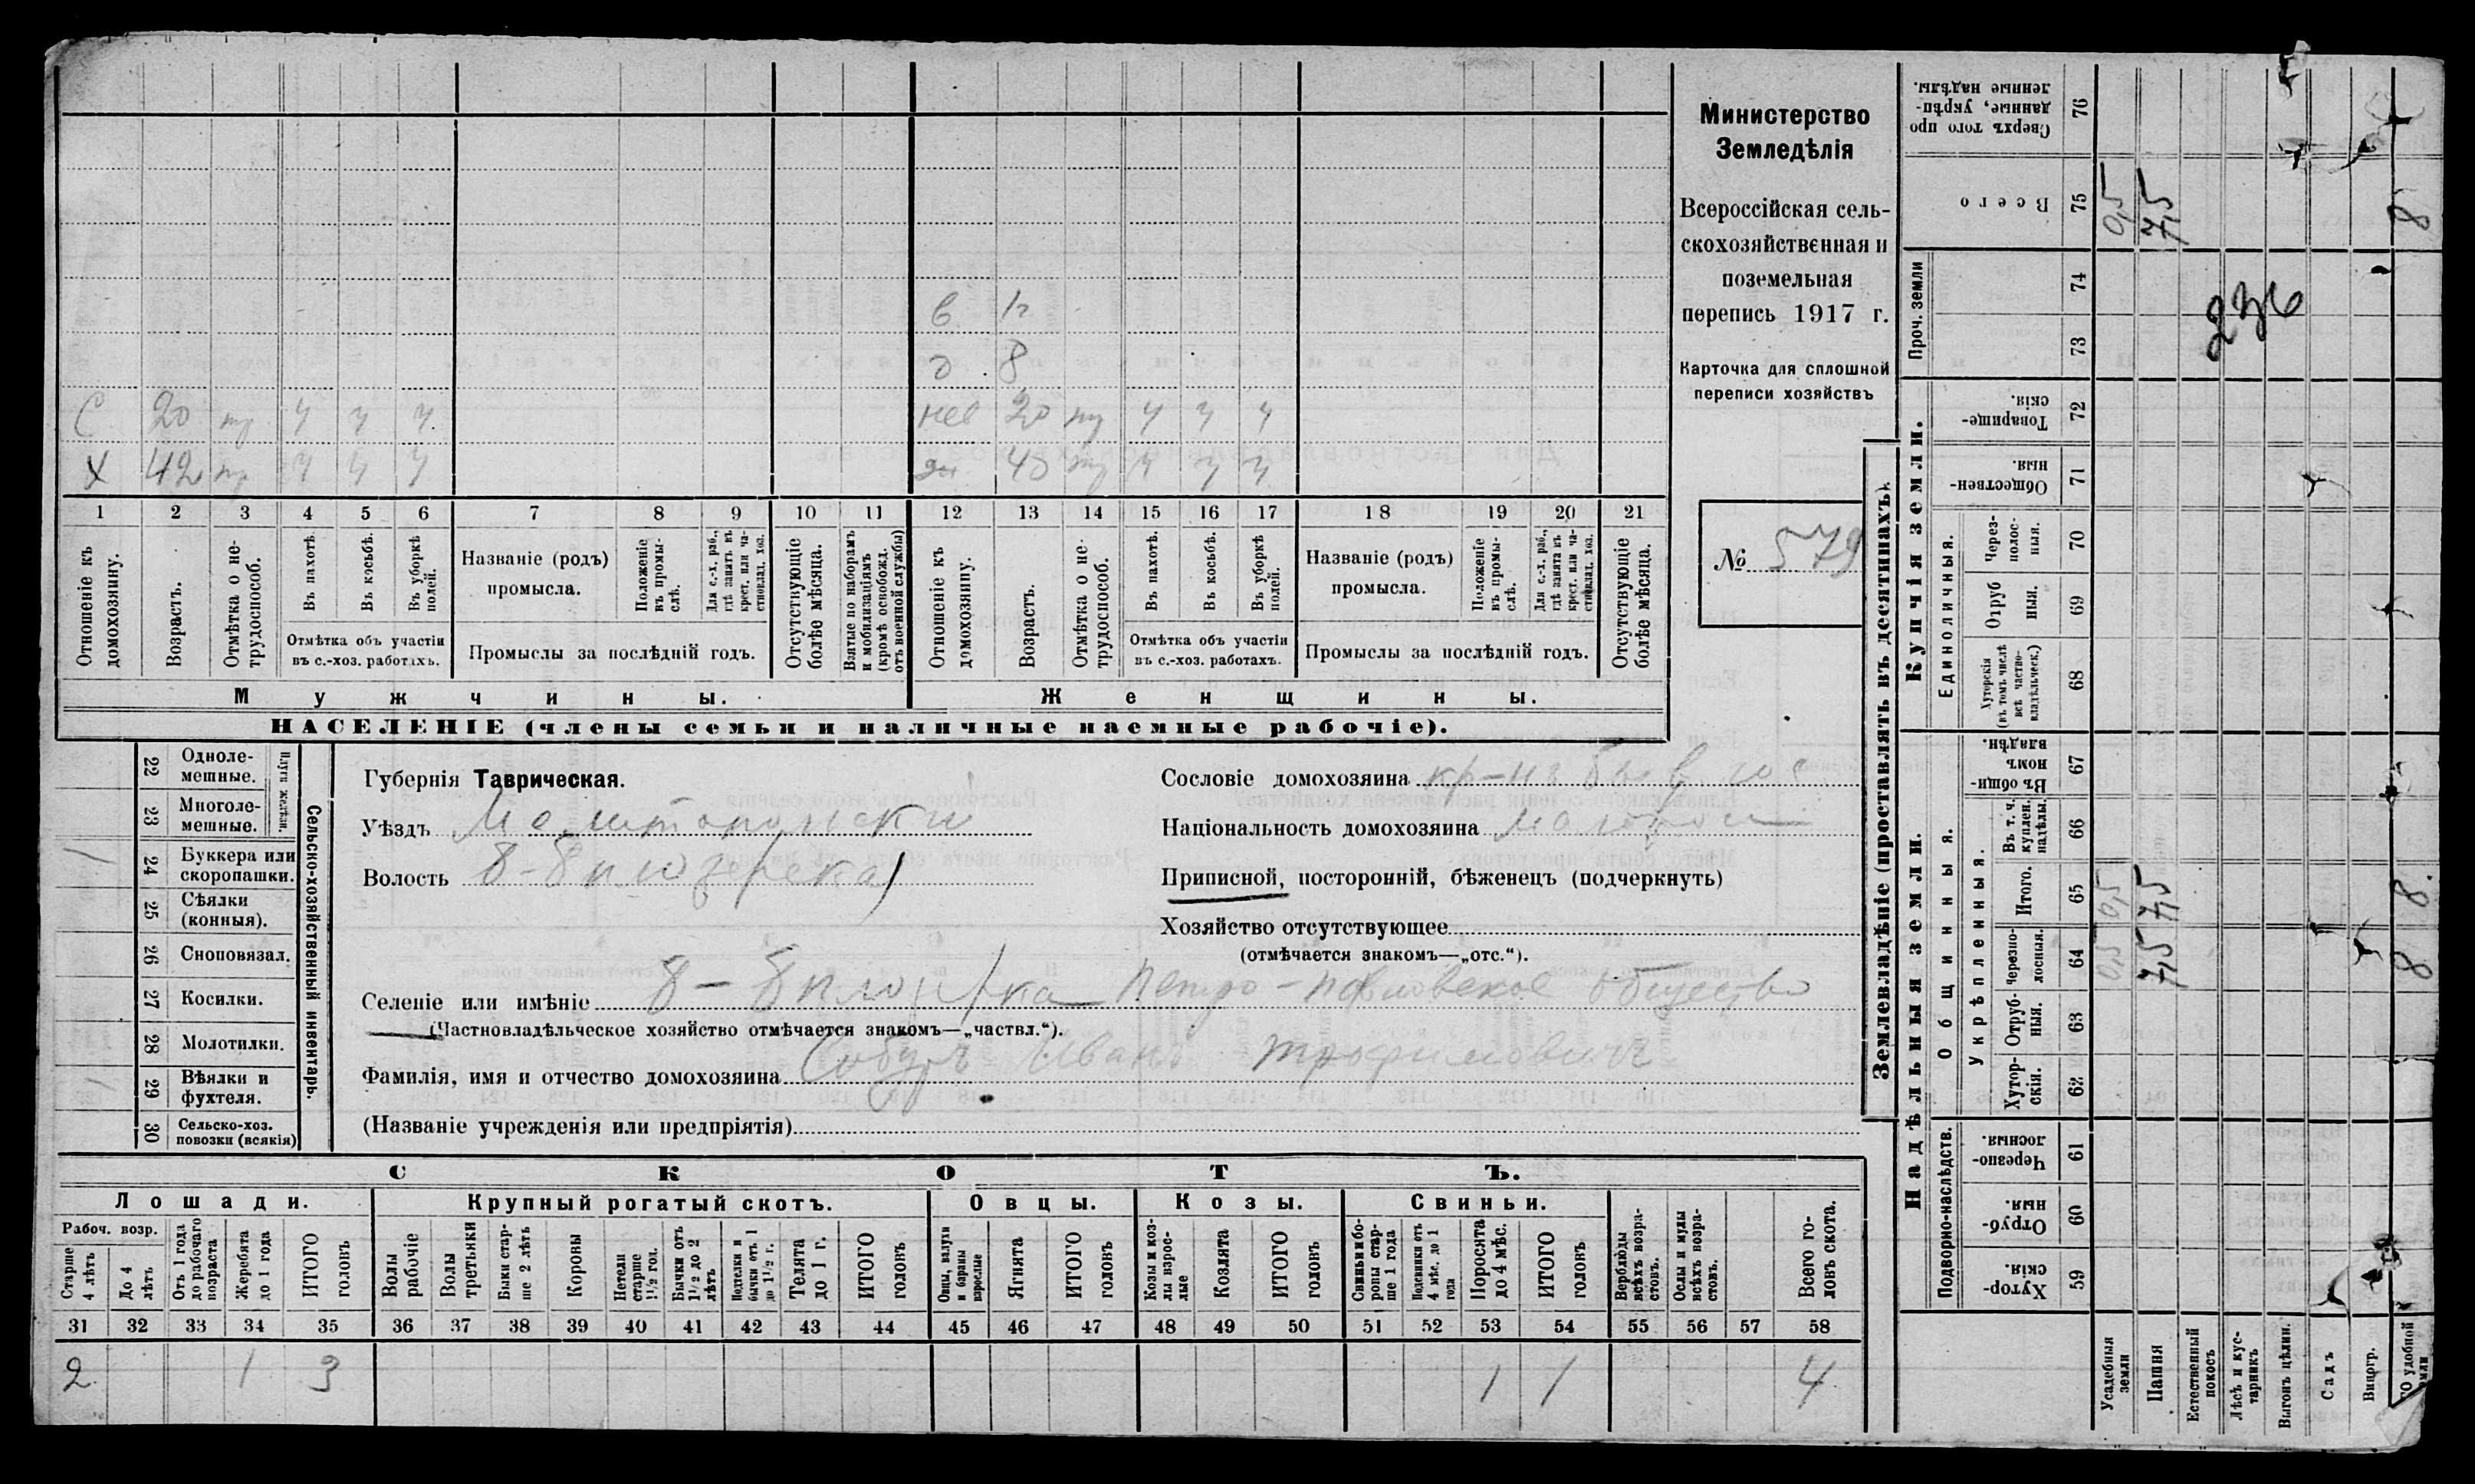 в
д 8
С 20 тр ч ч ч нев 20 тр ч ч ч
Х 42 тр ч ч ч 40 тр ч ч ч
1 2 3 4 5 6 7 8 9 10 11 12 13 14 15 16 17 18 19 20 21
Отношеніе къ домохозяину.
Возрастъ.
Отмѣтка о не-трудоспособ.
Въ пахотѣ.
Въ косьбѣ.
Въ уборкѣ полей.
Отмѣтка объ участіи
въ с.-хоз. работахъ.
Названіе (родъ)
промысла.
Положеніе въ промы-слѣ.
Для с.-х. раб., гдѣ занятъ въ крест. или ча-стновлад. хоз.
Промыслы за послѣдній годъ.
Отсутствующіе болѣе мѣсяца.
Взятые по наборамъ и мобилизаціямъ (кромѣ освобожд. отъ военной службы)
Отношеніе къ домохозяину.
Возрастъ.
Отмѣтка о не-трудоспособ.
Въ пахотѣ.
Въ косьбѣ.
Въ уборкѣ полей.
Отмѣтка объ участіи
въ с.-хоз. работахъ.
Названіе (родъ)
промысла.
Положеніе въ промы-слѣ.
Для с.-х. раб., гдѣ занята въ крест. или ча-стновлад. хоз.
Промыслы за послѣдній годъ.
Отсутствующіе болѣе мѣсяца.
Мужчины. Женщины.
НАСЕЛЕНІЕ (члены семьи и наличные наемные рабочіе).
Министерство
Земледѣлія
Всероссійская сель-
скохозяйственная и
поземельная
перепись 1917 г.
Карточка для сплошной
переписи хозяйствъ
№ 579
Сельско-хозяйственный инвентарь.
Плуги желѣзн.
22 Одноле-
мешные.
23 Многоле-
мешные.
1 24 Буккера или
скоропашки.
25 Сѣялки
(конныя).
26 Сноповязал.
27 Косилки.
28 Молотилки.
1 29 Вѣялки и
фухтеля.
30 Сельско-хоз.
повозки (всякія)
Губернія Таврическая.
Уѣздъ Мелитопольскій
Волость
Сословіе домохозяина кр-нъ
Національность домохозяина
Приписной, посторонній, бѣженецъ (подчеркнуть)
Хозяйство отсутствующее
(отмѣчается знакомъ—„отс.“).
Селеніе или имѣніе Петро-Павловское общество
(Частновладѣльческое хозяйство отмѣчается знакомъ—„частвл.“).
Фамилія, имя и отчество домохозяина Иванъ Трофимовичъ
(Названіе учрежденія или предпріятія)
СКОТЪ.
Лошади. Крупный рогатый скотъ. Овцы. Козы. Свиньи.
Рабоч. возр.
Старше 4 лѣтъ
До 4 лѣтъ
Отъ 1 года до рабочаго возраста
Жеребята до 1 года
ИТОГО головъ
Волы рабочіе
Волы третьяки
Быки стар-ше 2 лѣтъ
Коровы
Нетели старше 1½ год.
Бычки отъ 1½ до 2 лѣтъ
Подтелки и бычки отъ 1 до 1½ г.
Телята до 1 г.
ИТОГО головъ
Овцы, валухи и бараны взрослые
Ягнята
ИТОГО головъ
Козы и коз-лы взрос-лые
Козлята
ИТОГО головъ
Свиньи и бо-ровы стар-ше 1 года
Подсвинки отъ 4 мѣс. до 1 года
Поросята до 4 мѣс.
ИТОГО головъ
Верблюды всѣхъ возра-стовъ.
Ослы и мулы всѣхъ возра-стовъ.
Всего го-ловъ скота.
31 32 33 34 35 36 37 38 39 40 41 42 43 44 45 46 47 48 49 50 51 52 53 54 55 56 57 58
2 1 3 1 1 4
Землевладѣніе (проставлять въ десятинахъ).
Надѣльныя земли. Купчія земли. Проч. земли
Подворно-наслѣдств. Общинныя. Единоличныя.
Укрѣпленныя.
Хутор-скія. 59
Отруб-ныя. 60
Черезпо-лосныя. 61
Хутор-скія. 62
Отруб-ныя. 63
Черезпо-лосныя. 64
Итого. 65
Въ т. ч. куплен. надѣлы. 66
Въ общин-номъ владѣн. 67
Хуторскія (въ томъ числѣ всѣ частно-владѣльческ.) 68
Отруб ныя. 69
Через-полос-ныя. 70
Обществен-ныя. 71
Товарище-скія. 72
73
74
Всего 75
Сверхъ того про данные, укрѣп-ленные надѣлы. 76
Усадебныя земли 0,5 0,5 0,5
Пашня 7,5 7,5 7,5
Естественный покосъ
Лѣсъ и кус-тарникъ
Выгонъ цѣлин.
Садъ
Виногр.
удобной земли 8 8. 8
236